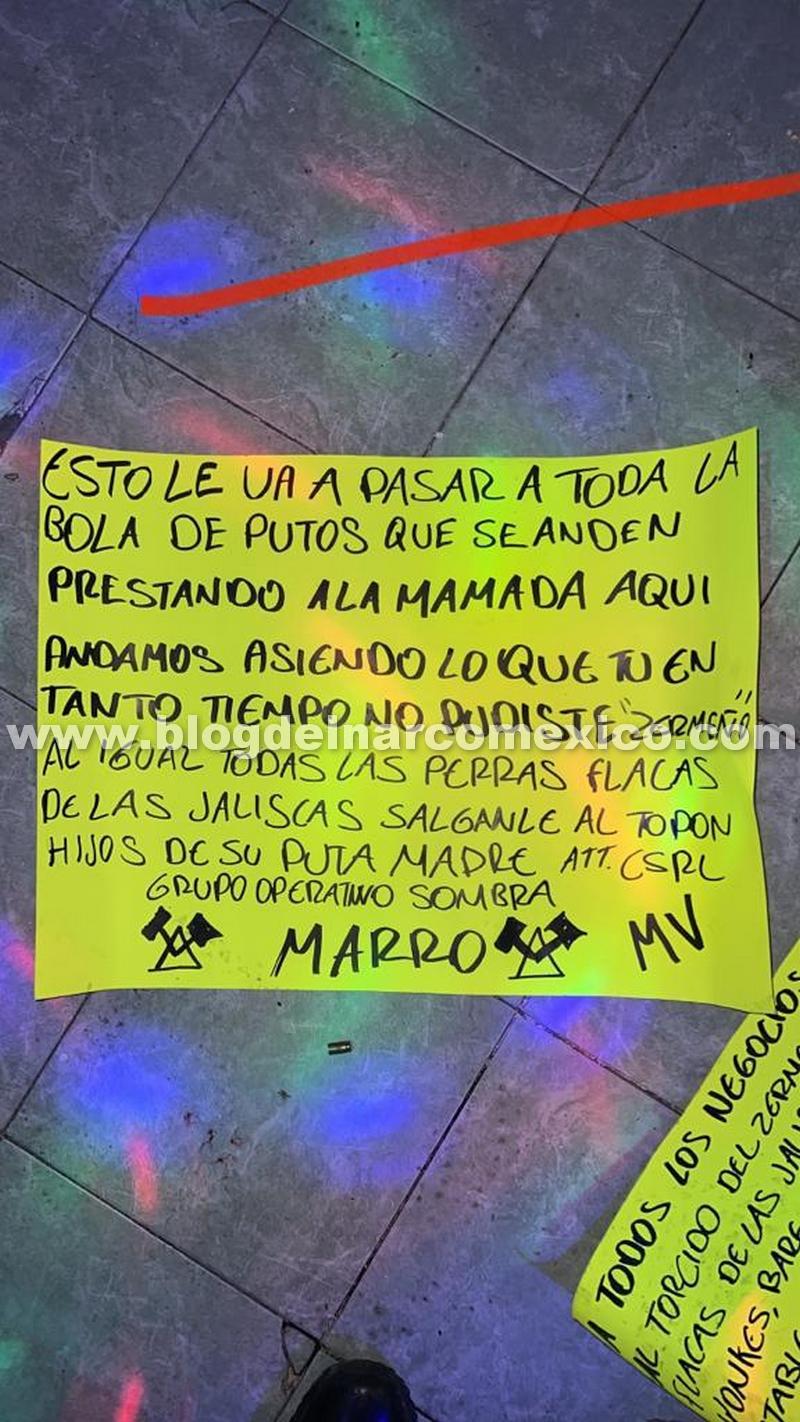 ESTO LE VA A PASAR A TODA LA
BOLA DE PUTOS QUE SE ANDEN
PRESTANDO A LA MAMADA AQUI
ANDAMOS ASIENDO LO QUE TU EN
TANTO TIEMPO NO PUDISTE "ZERMEÑO"
www.blogdelnarcomexico.com
AL IGUAL TODAS LAS PERRAS FLACAS
DE LAS JALISCAS SALGANLE AL TOPON
HIJOS DE SU PUTA MADRE ATT. CSRL
GRUPO OPERATIVO SOMBRA
MARRO MV
A TODOS LOS NEGOCIOS
AL TORCIDO DEL
FLACAS DE LAS
YONKES,